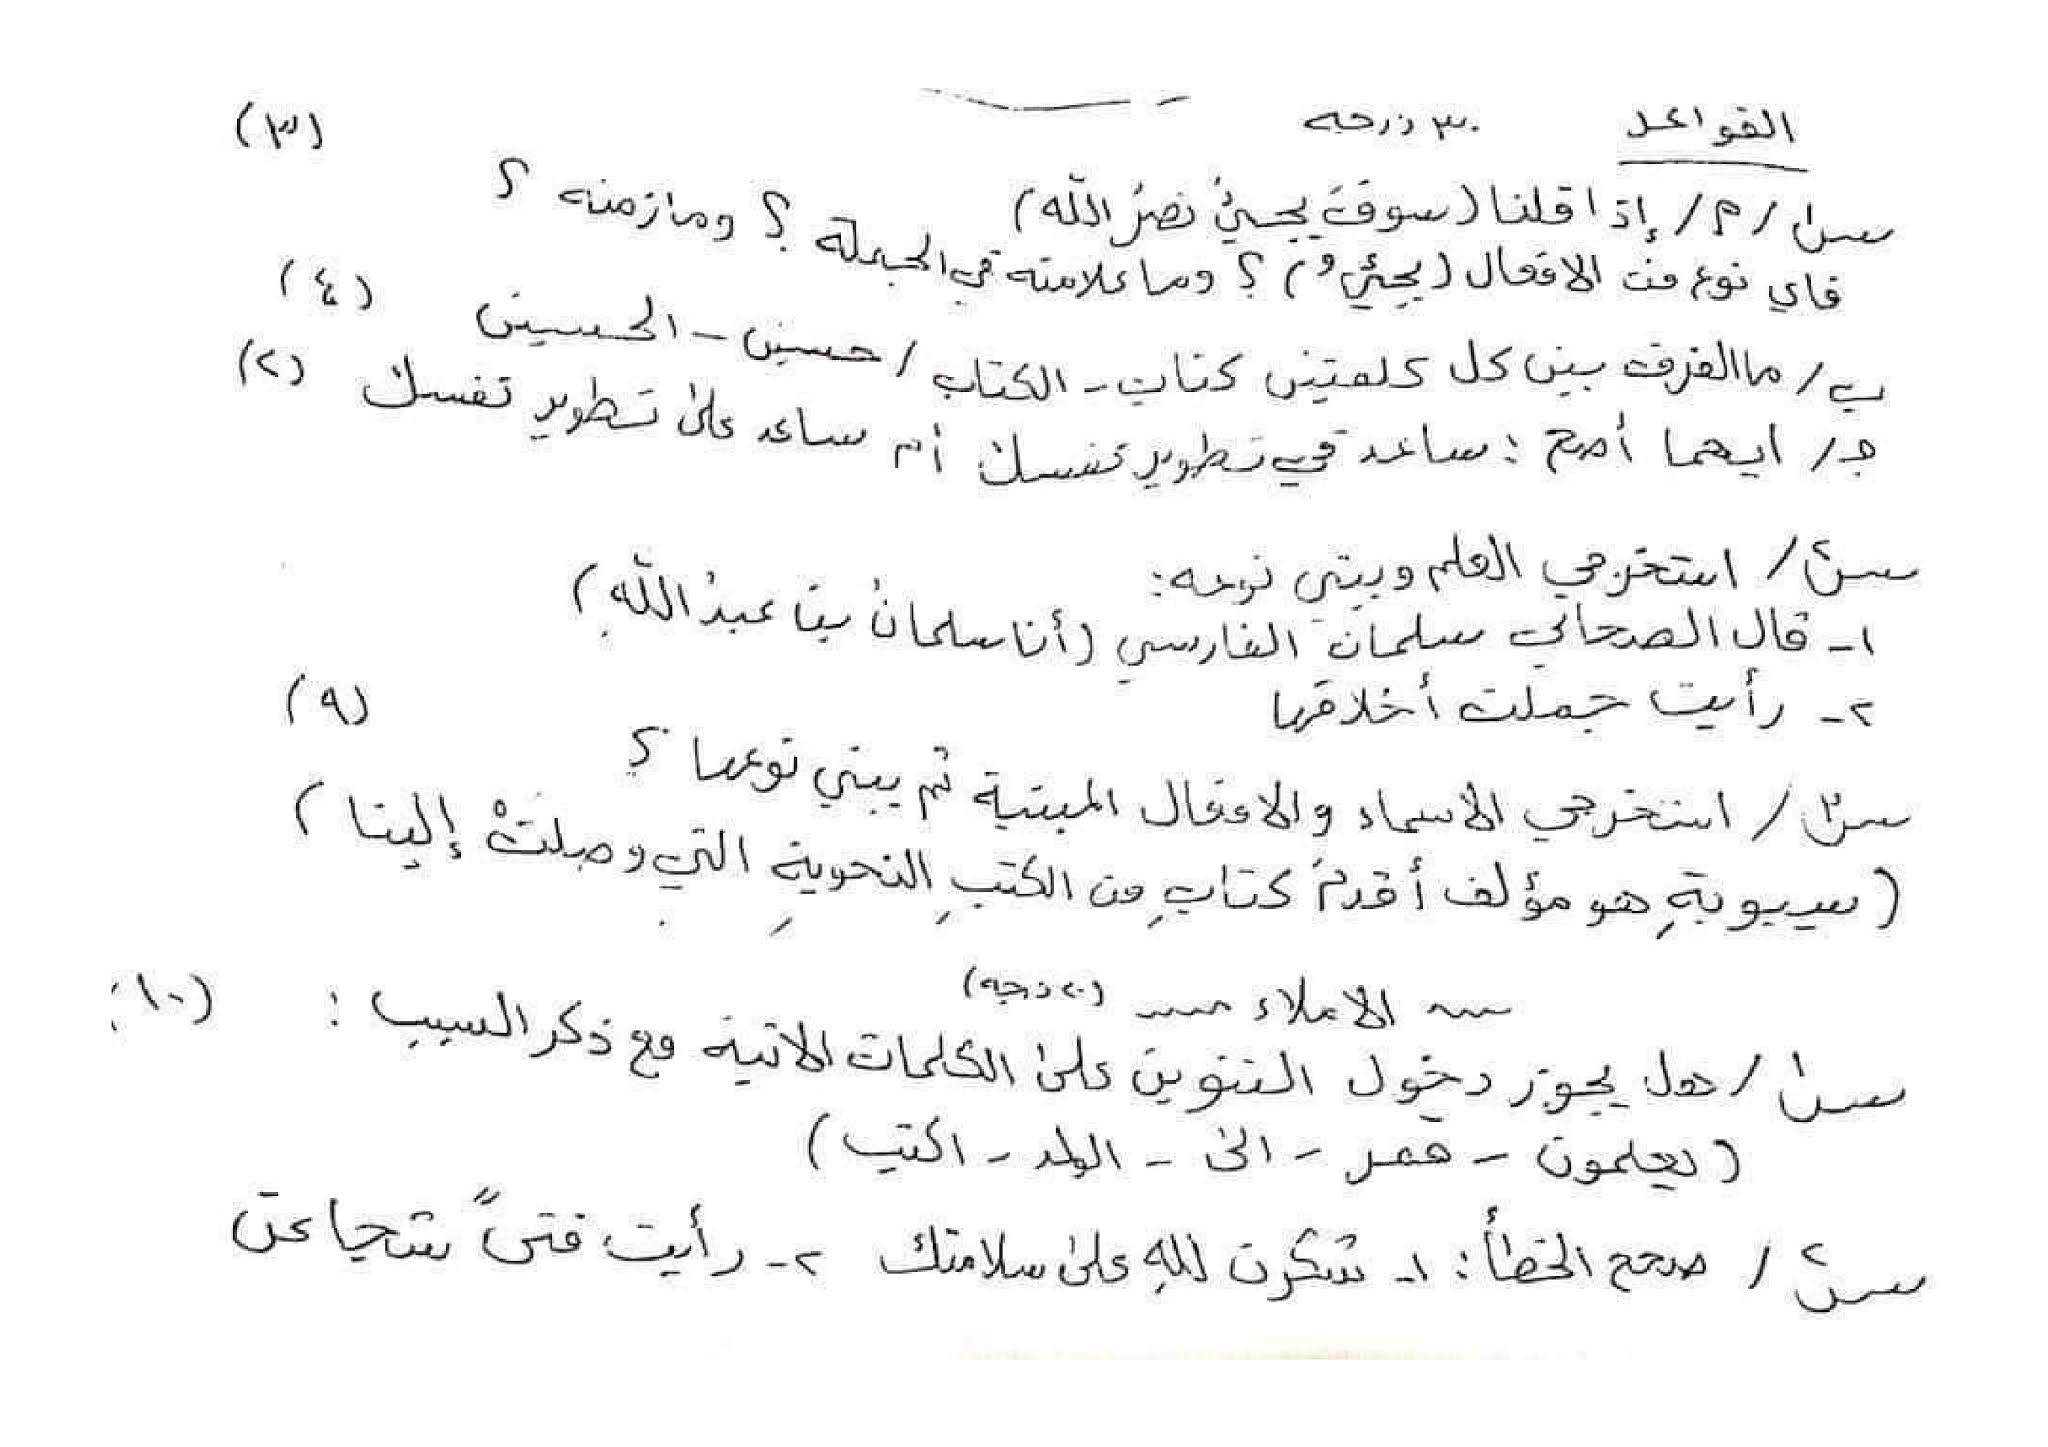 القواعد ٣٠ درجه (٣)
س١/ ٢/ إذا قلنا (سوفَ يجيئُ نصرُ الله)
فاي نوع من الافعال (يجيئُ) ؟ وما علامته في الجملة ؟ ومازمنه ؟
ب/ ماالفرق بين كل كلمتين كتاب - الكتاب / حسين - الحسين (٤)
جـ/ ايهما أصح : ساعد في تطوير نفسك أم ساعد على تطوير نفسك (٢)
س٢/ استخرجي العلم وبيني نوعه:
١- قال الصحابي سلمان الفارسي (أنا سلمانُ بن عبدُ اللهِ)
٢- رأيت جملت أخلاقها (٩)
س٣/ استخرجي الاسماء والافعال المبنية ثم بيني نوعها ؟
(سيبويةِ هو مؤلف أقدمُ كتابِ من الكتبِ النحويةِ التي وصلتْ إلينا)
الاملاء (٢٠ درجه)
س١/ هل يجوز دخول التنوين على الكلمات الاتية مع ذكر السبب : (١٠)
(يعلمون - عمر - الى - الولد - اكتب)
س٢/ صحح الخطأ : ١- شكرن للهِ على سلامتك ٢- رأيت فتىً شجاعن